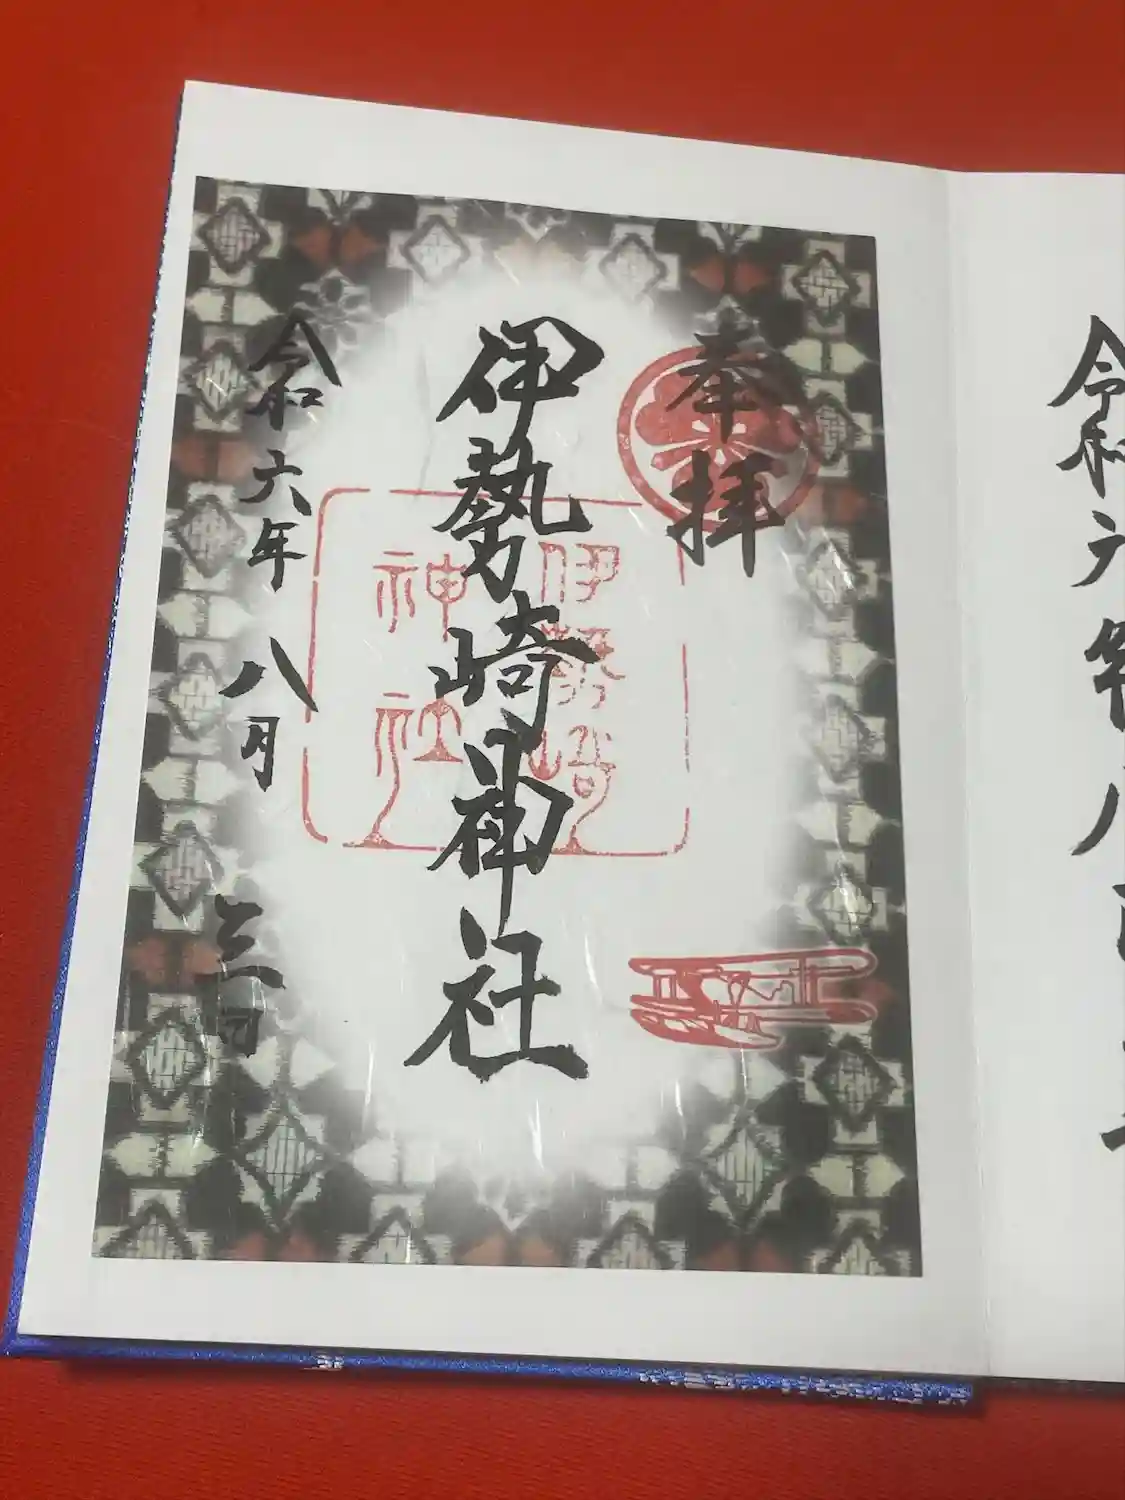 令和六年八月
奉拝
伊勢崎神社
伊勢崎
神社
令和六年八月三日